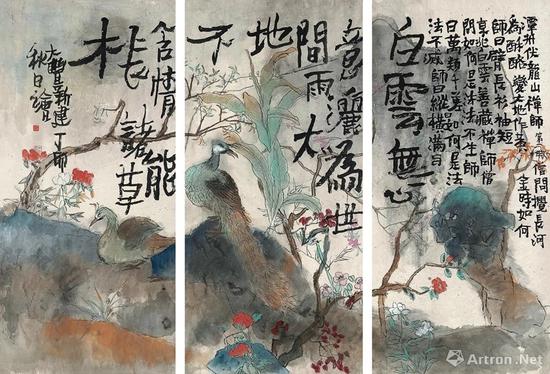 潭州伏龍山禪師第一世僧問攪長河
為酥酪變大地作黃金時如何
師曰臂長衫袖短
京兆白雲善藏禪師僧
問如何是法法不生師
曰萬類千差如何是法
法不滅師曰縱橫滿目
白雲無心
意灑為世
間雨大
地
不
含情能
諸草
大豐新建丁酉
秋日繪
Artron.Net